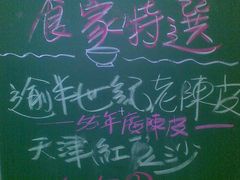 食家特選
逾半世紀老陳皮
55年舊陳皮
天津紅豆沙